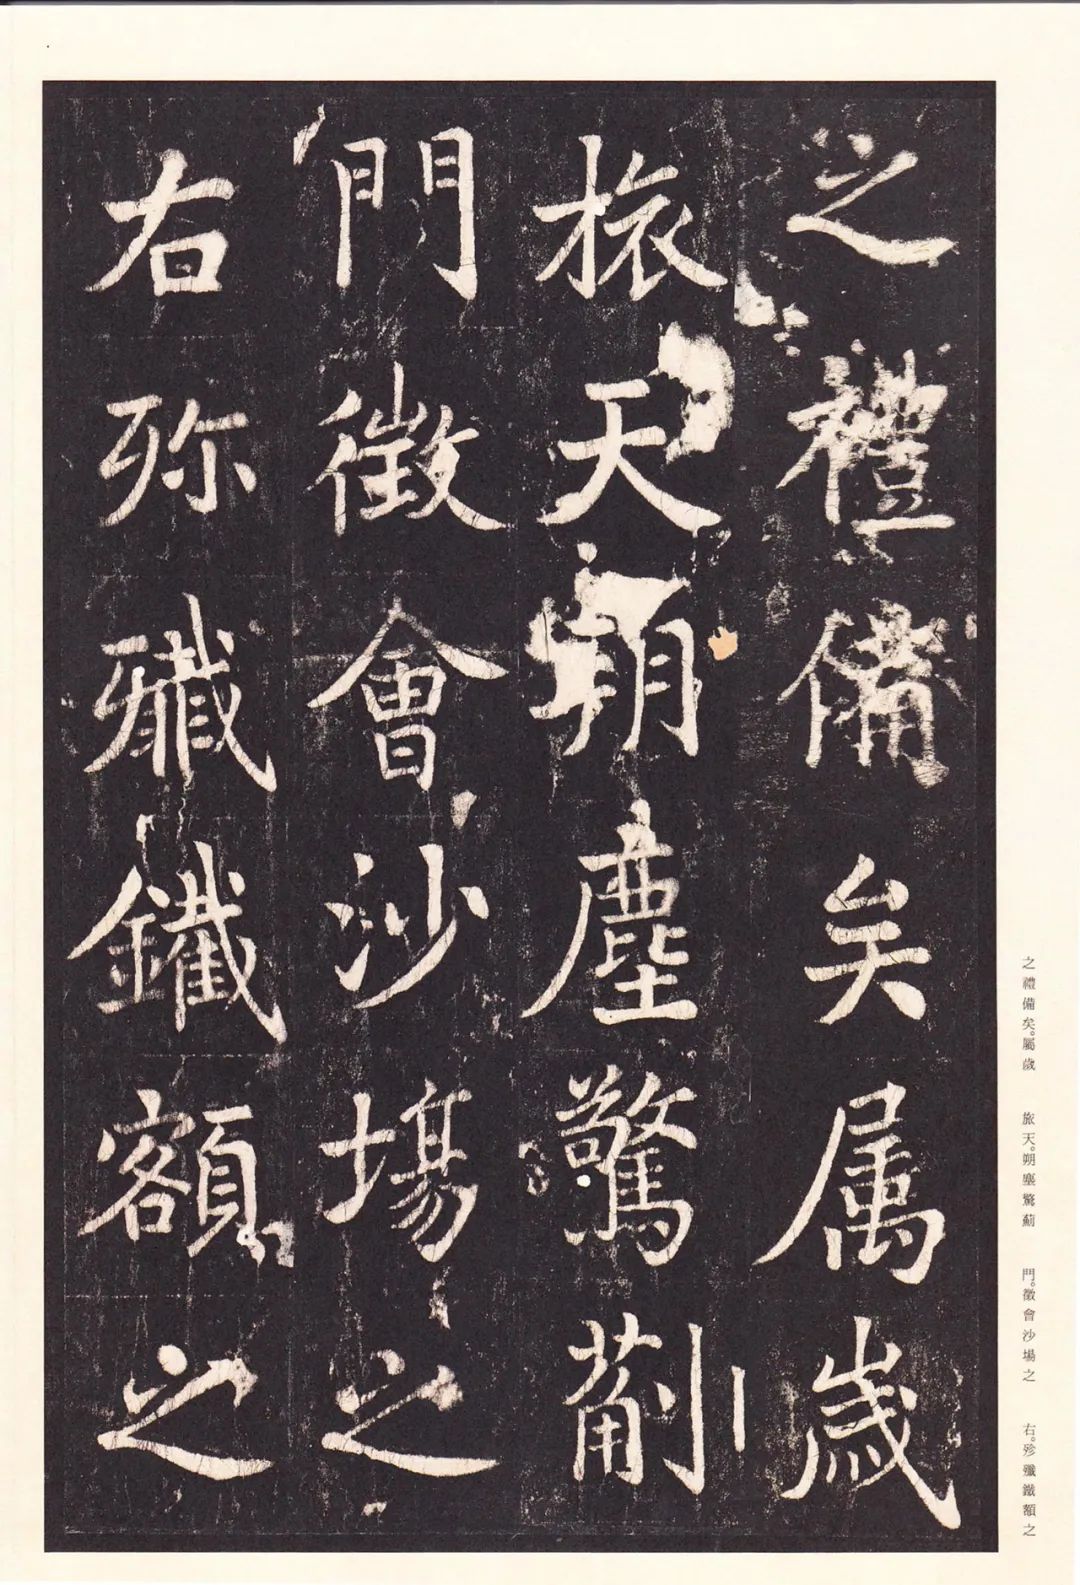 之禮備矣属歲
旅天朔塵驚薊
門徵會沙場之
右殄殲鐵額之
之禮備矣。屬歲 旅天。朔塵驚薊 門。徵會沙場之 右。殄殲鐵額之